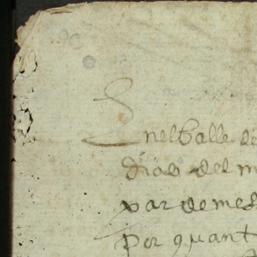 En el Balle de
dias del m
par de mes
Por quant